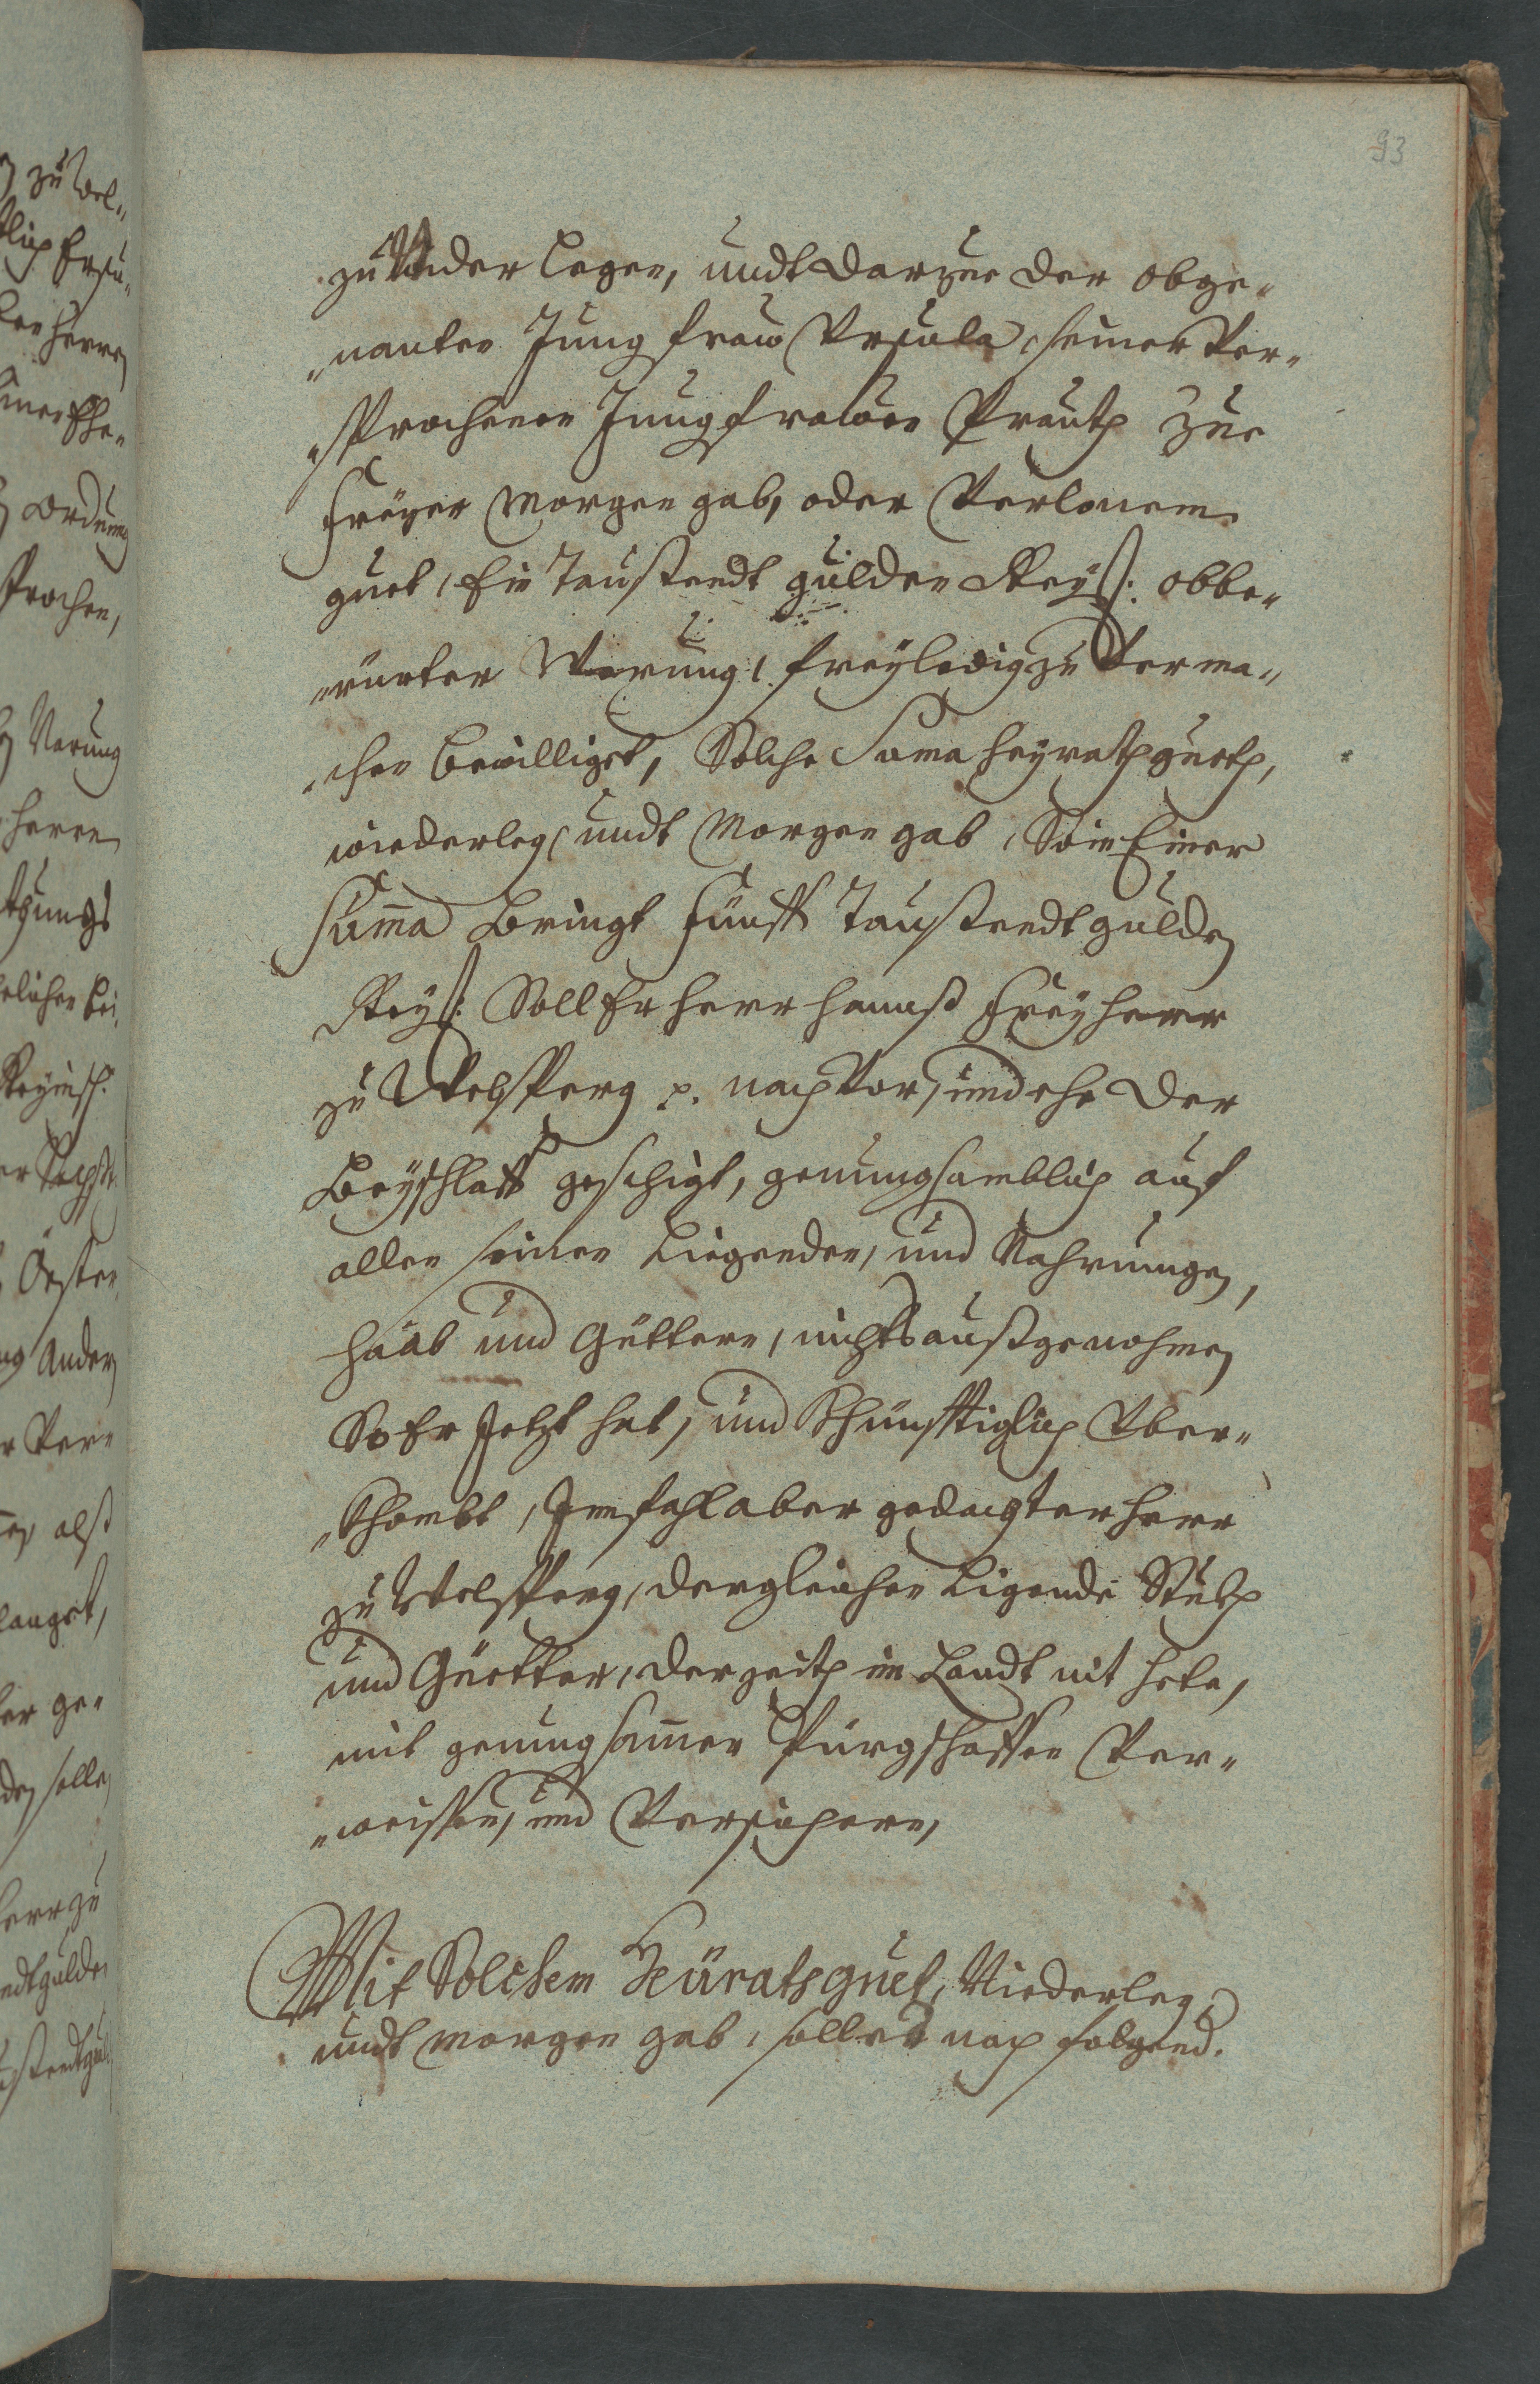 93
zu Wider legen, undt darzue der obge„
„nanten Jungfraw Ursula, seiner Ver„
„sprochenen Jungfrawen Prauth zue
Freyer Morgen gab, oder Verlornem
guet, Ein Taußendt gulden Reyß: obbe„
„rürter Werung, freyledig zu Verma„
„chen bewilliget, Solche Suma heyrathguets,
widerleg, undt Morgen gab, So in Einer
Suma bringt Fünff Taußendt gulden
Reyß: Soll Er Herr Hannß Freyherr
zu Welsperg p. nach Vor, und ehe der
Beyschlaff geschigt, genuegsamblich auf
allen seinen Liegenden, und Nahrungen,
Haab und Güttern, nichts außgenohmen
So Er Jetzt hat, und Khünfftiglich Uber„
„Khombt, Im fahl aber gedachter Herr
zu Welsperg, dergleichen Ligende Stukh
und Güetter, der Zeith im Landt nit hete,
mit genuegsamen Pürgschafften Ver„
„weissen, und Versichern,
Mit Solchem Heüratsguet, Widerleg,
undt Morgen gab, solle es nach folgend.